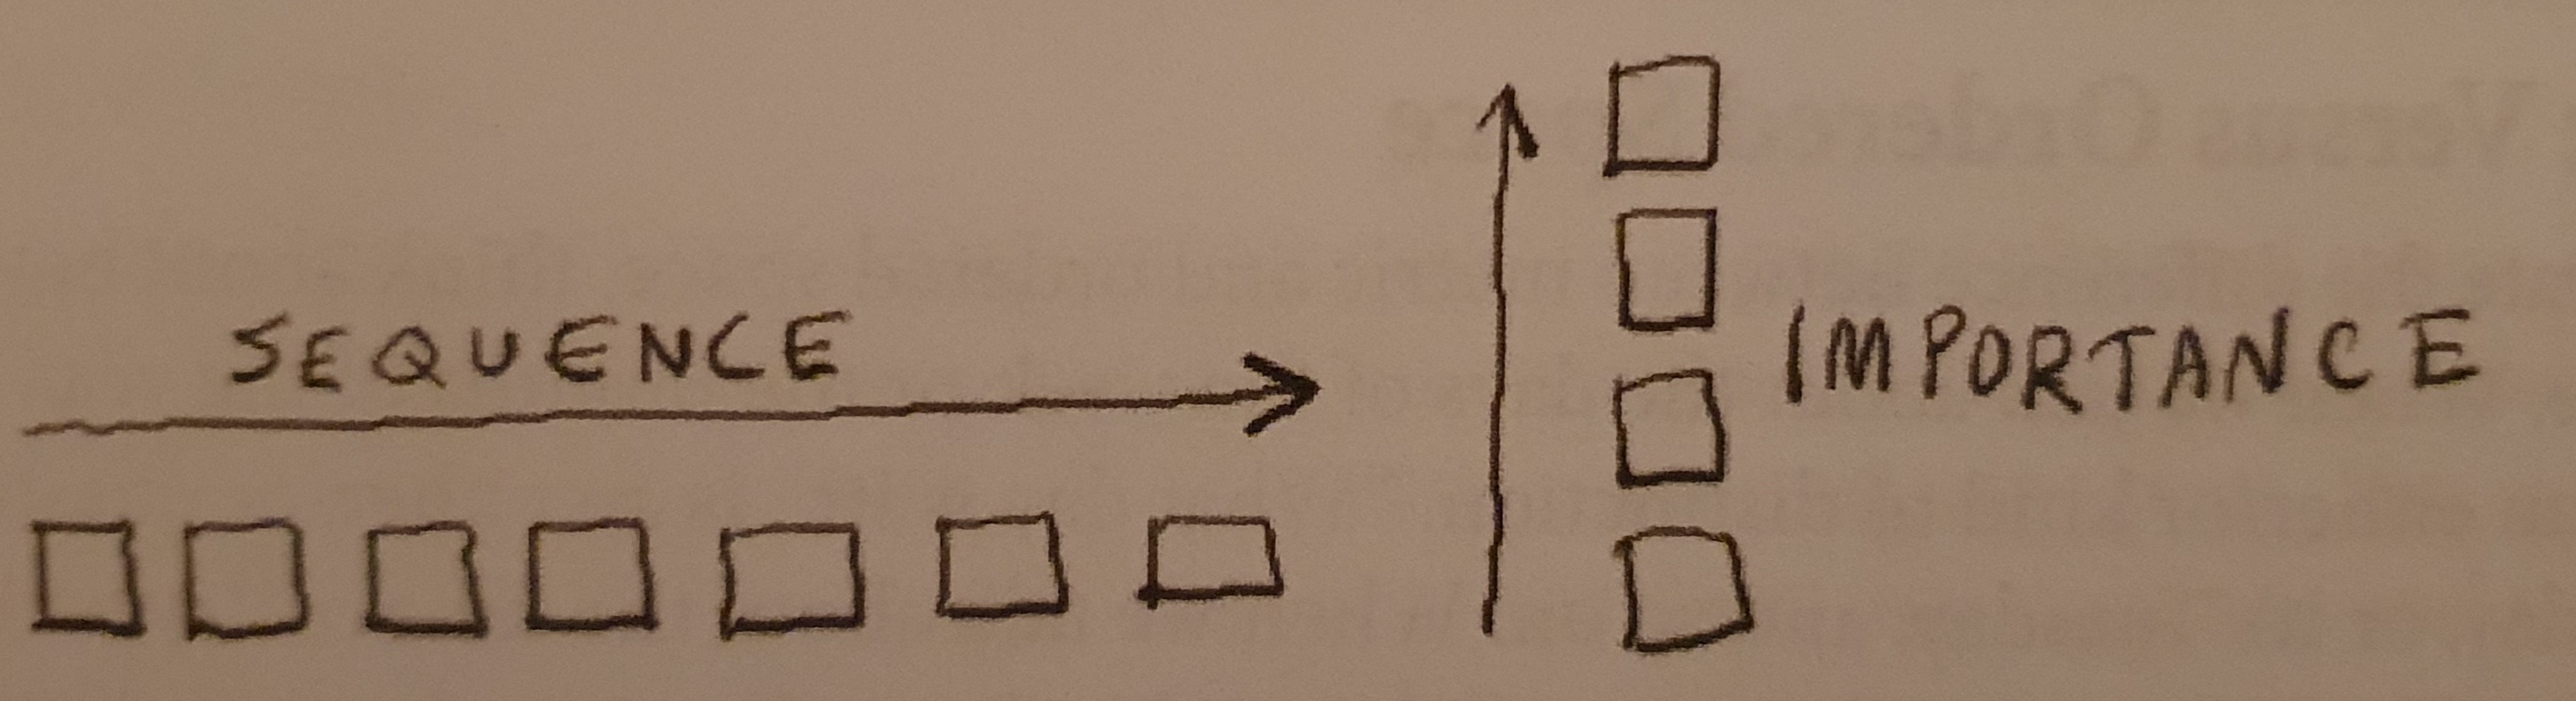 SEQUENCE
IMPORTANCE